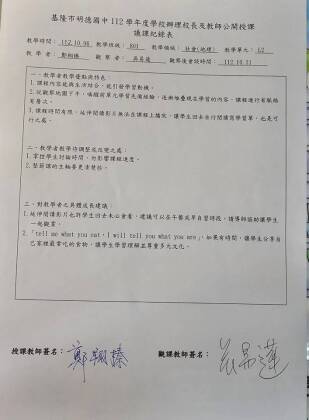 基隆市明德國中 112 學年度學校辦理校長及教師公開授課
議課紀錄表
教學時間：112.10.06 教學班級：801 教學領域：社會(地理) 教學單元：L2
教 學 者：鄭翔榛 觀 察 者： 觀察後會談時間：112.10.11
一、教學者教學優點與特色：
1. 課程內容能與生活結合，能引發學習動機。
2. 從觀察地圖下手，喚醒前單元學習先備經驗，逐漸堆疊現在學習的內容，課程進行有脈絡
有層次。
3. 課程時間有限，延伸閱讀影片無法在課程上播放，讓學生回去自行閱讀寫學習單，也是可
行之處。
二、教學者教學待調整或改變之處：
1. 掌控學生討論時間，勿影響課程進度。
2. 整節課的主軸要更清楚些。
三、對教學者之具體成長建議：
1. 延伸閱讀影片也許學生回去未必會看，建議可以在午餐或早自習時段，請導師協助讓學生
一起觀賞。
2. 「tell me what you eat, I will tell you what you are」，如果有時間，讓學生分享自
己家裡最常吃的食物，讓學生學習理解並尊重多元文化。
授課教師簽名：鄭翔榛 觀課教師簽名：